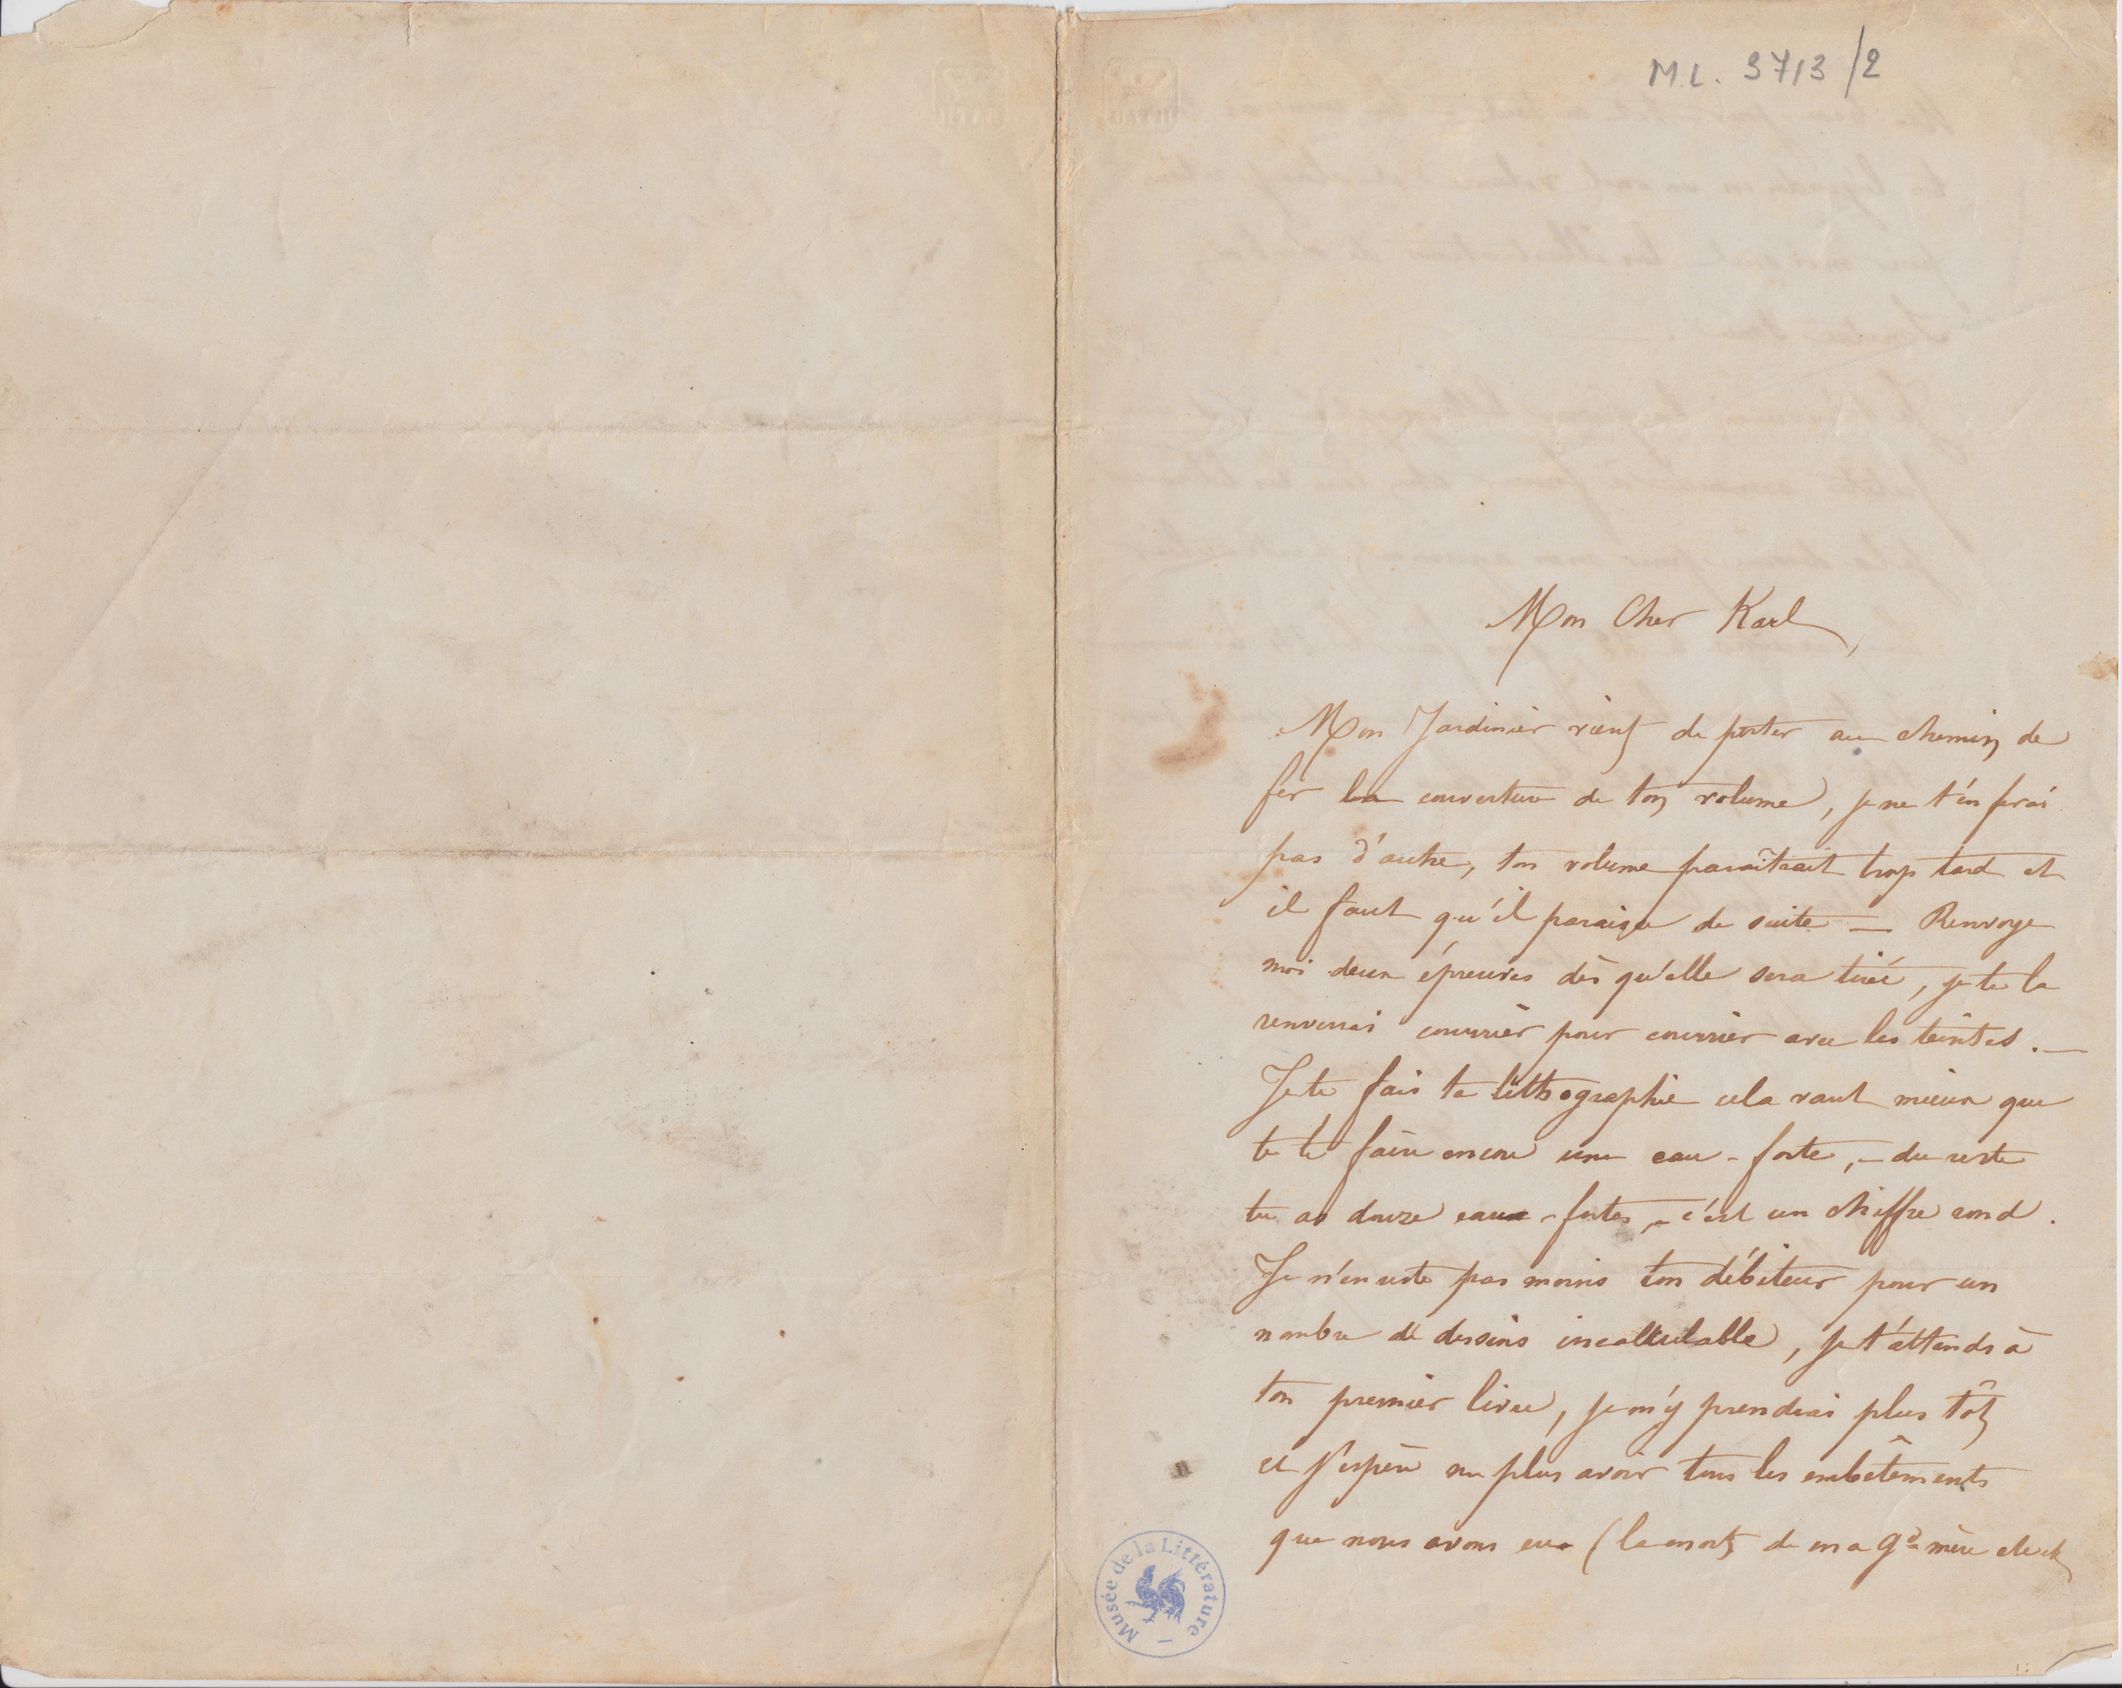 M.L. 3713/2
Mon Cher Karl,
Mon Jardinier vient de porter au chemin de
fer la couverture de ton volume, je ne t'en ferai
pas d'autre, ton volume paraîtrait trop tard et
il faut qu'il paraisse de suite — Renvoye
moi deux épreuves dès qu'elle sera tirée, je te la
renverrai courrier pour courrier avec les teintes. —
Je te fais ta lithographie cela vaut mieux que
te faire encore une eau-forte, — du reste
tu as douze eaux-fortes, — c'est un chiffre rond.
Je n'en reste pas moins ton débiteur pour un
nombre de dessins incalculable, je t'attends à
ton premier livre, je m'y prendrai plus tôt
et j'espère ne plus avoir tous les embêtements
que nous avons eus (la mort de ma gde mère etc etc
Musée de la Littérature